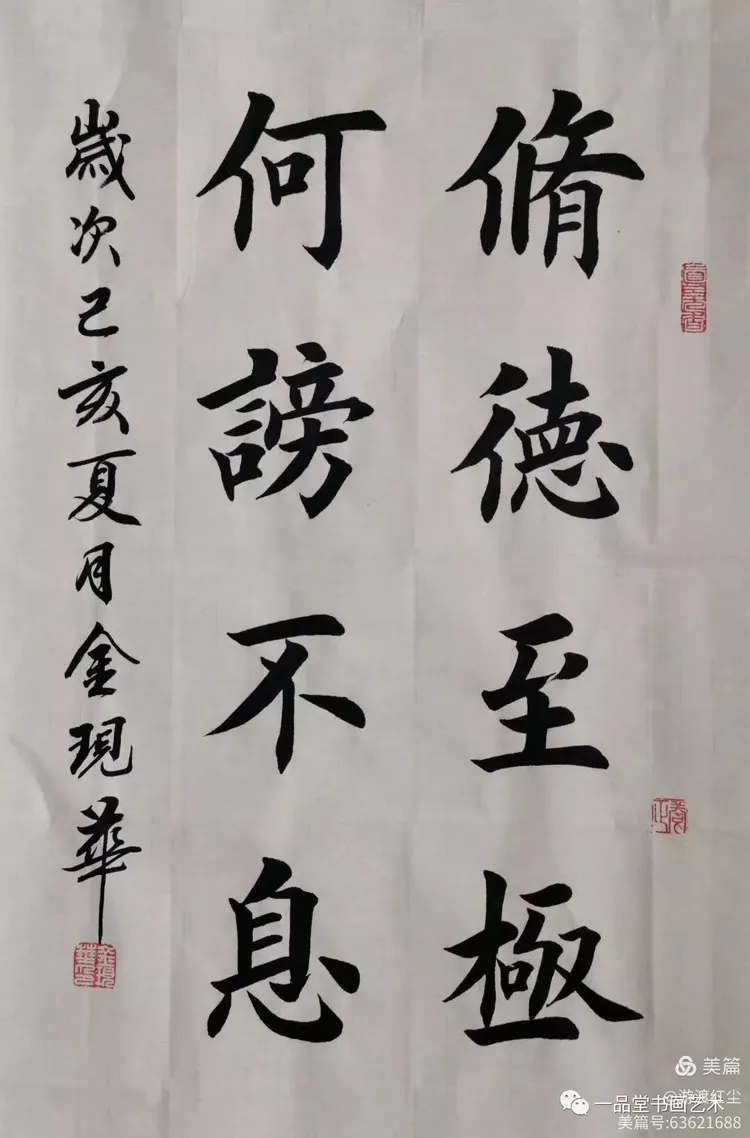 脩德至極
何謗不息
歲次己亥夏月金現華
美篇
@游渡红尘
一品堂书画艺术
美篇号:63621688